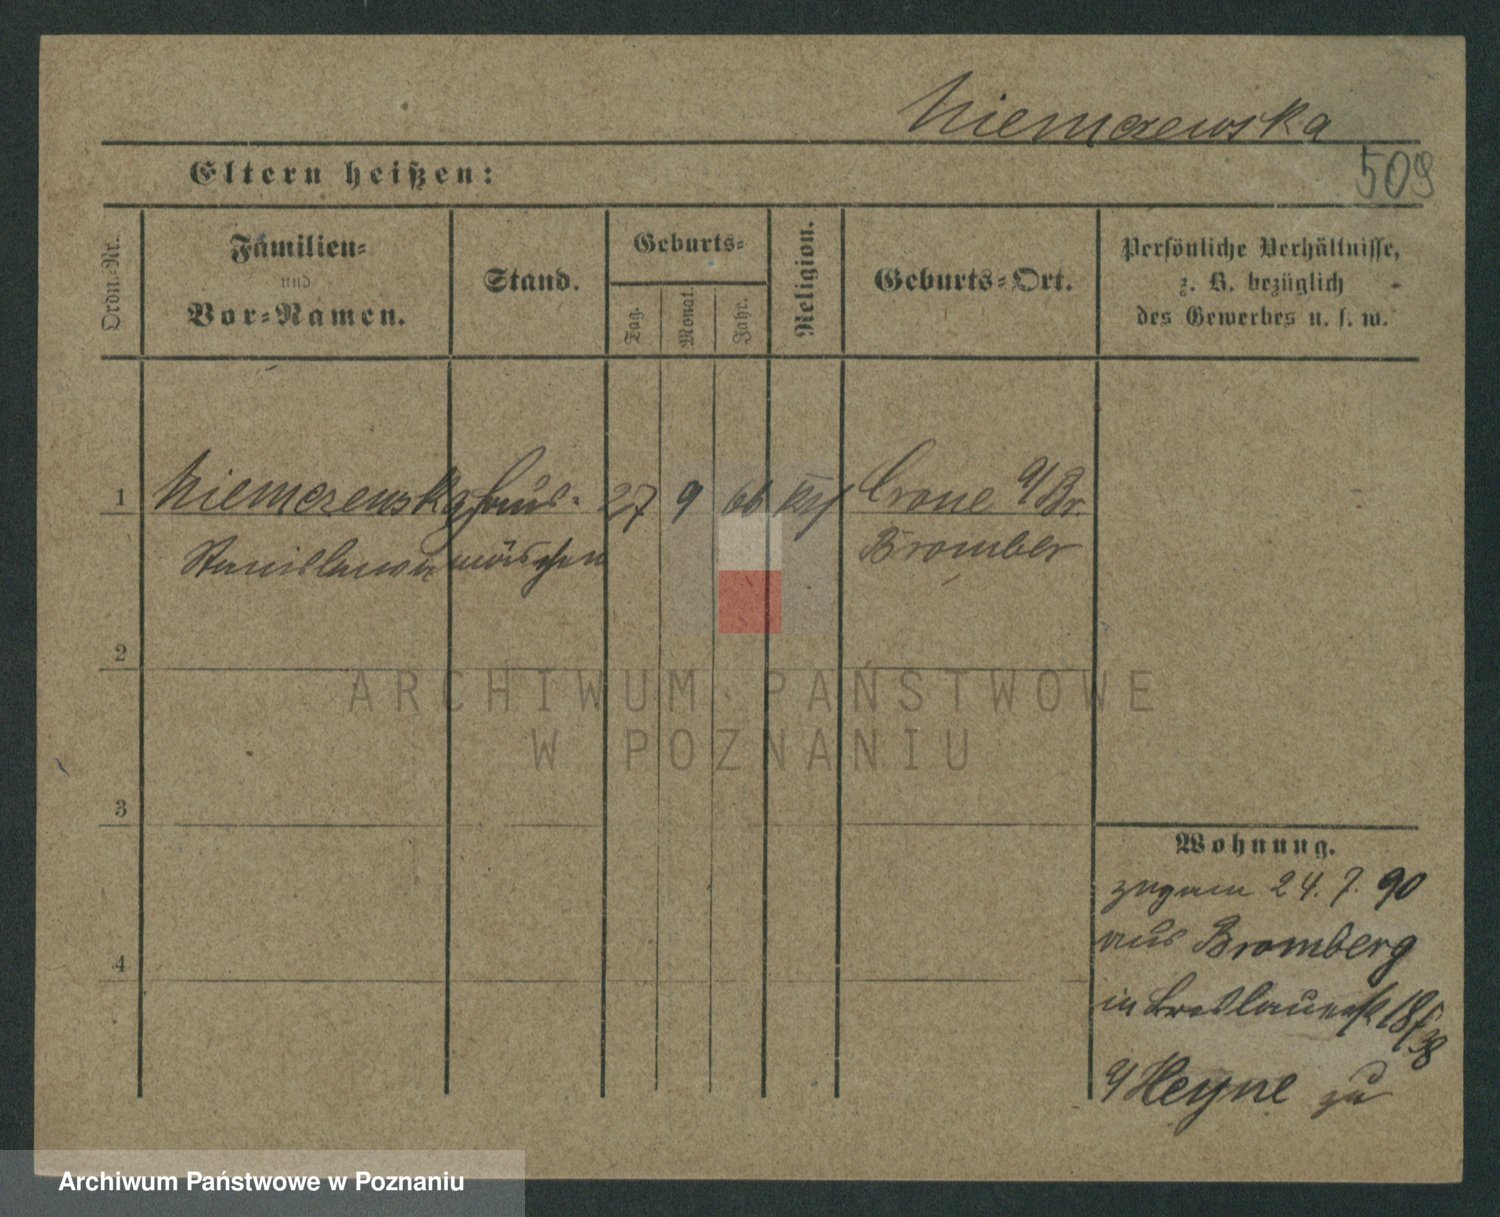 Niemczewska
509
Eltern heißen:
Ordn.-Nr.
Familien-
und
Vor-Namen.
Stand.
Geburts-
Tag.
Monat.
Jahr.
Religion.
Geburts-Ort.
Persönliche Verhältnisse,
z. B. bezüglich
des Gewerbes u. s. w.
1 Niemczewska Haus- 27 9 66 Crone a/Br.
Stanislawa mädchen Bromber
2
ARCHIWUM PAŃSTWOWE
W POZNANIU
3
4
Wohnung.
24. 7. 90
aus Bromberg
in Breslauerstr 18/
38
Heyne zu
Archiwum Państwowe w Poznaniu